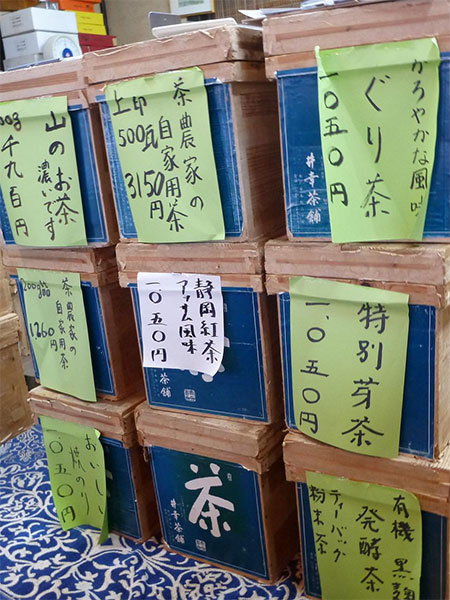 山のお茶
濃いです
千九百円
茶農家の
自家用茶
上印
500g
3150円
かろやかな風味
ぐり茶
一〇五〇円
井幸茶舗
200g詰
茶農家の
自家用茶
1260円
静岡紅茶
アッサム風味
一〇五〇円
茶舗
特別芽茶
一、〇五〇円
おいしい
焼のり
〇五〇円
茶
井幸茶舗
有機 黒麹
発酵茶
ティーバッグ
粉末茶